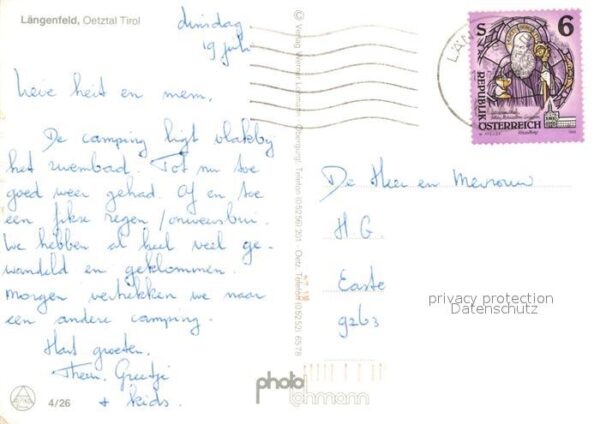 Längenfeld, Oetztal Tirol
dinsdag
19 juli
Lieve heit en mem,
De camping ligt vlakbij
het zwembad. Tot nu toe
goed weer gehad. Af en toe
een fikse regen/onweersbui.
We hebben al heel veel ge-
wandeld en geklommen.
Morgen vertrekken we naar
een andere camping.
Hart. groeten.
Greetje
+ kids.
4/26
© Verlag Werner Lohmann
Telefon (05256) 201 - Oetz, Telefon (05252) 6578
LÄN
S 6
REPUBLIK
ÖSTERREICH
De Heer en Mevrouw
H.G.
Easte
9263
privacy protection
Datenschutz
photo
lohmann